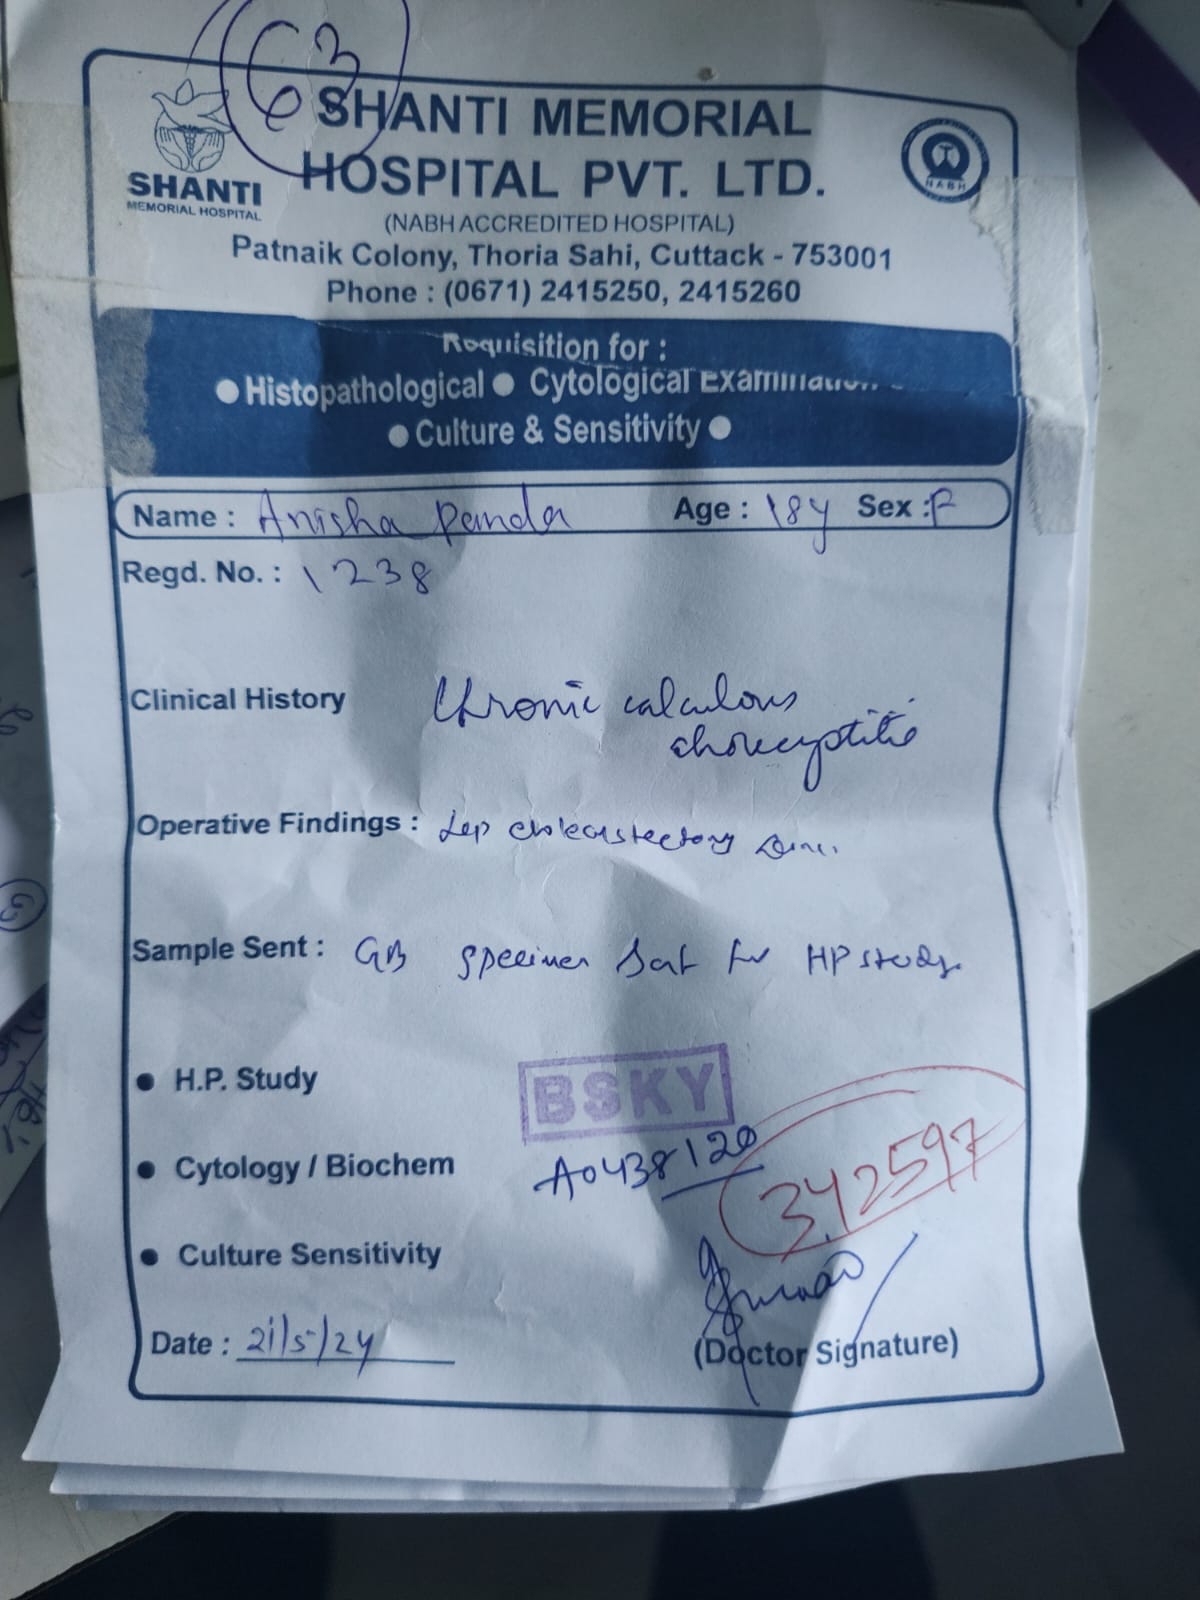 63
SHANTI MEMORIAL
HOSPITAL PVT. LTD.
SHANTI
MEMORIAL HOSPITAL
NABH
(NABH ACCREDITED HOSPITAL)
Patnaik Colony, Thoria Sahi, Cuttack - 753001
Phone : (0671) 2415250, 2415260
Requisition for :
● Histopathological ● Cytological Examination
● Culture & Sensitivity ●
Name : Anisha Panda Age : 18y Sex : F
Regd. No. : 1238
Clinical History Chronic calculous
cholecystitis
Operative Findings : Lap cholecystectomy done.
Sample Sent : GB specimen sent for HP study.
● H.P. Study
BSKY
● Cytology / Biochem A0438120
342597
● Culture Sensitivity
Date : 21/5/24 (Doctor Signature)